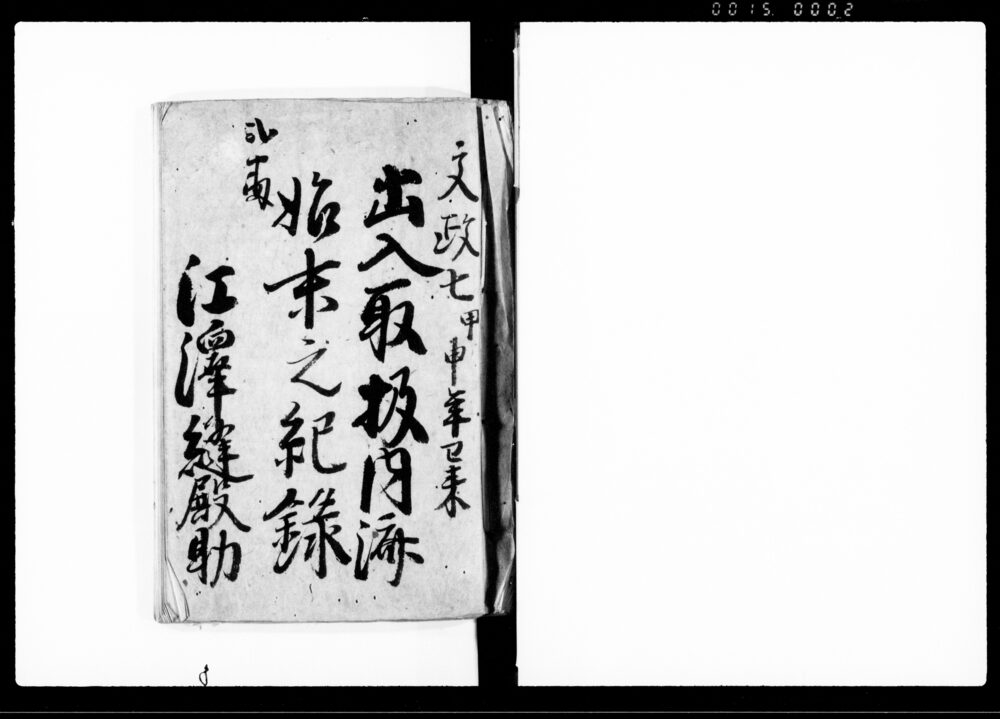 0015 0002
文政七甲申年已来
出入取扱内済
始末之紀録
江澤縫殿助